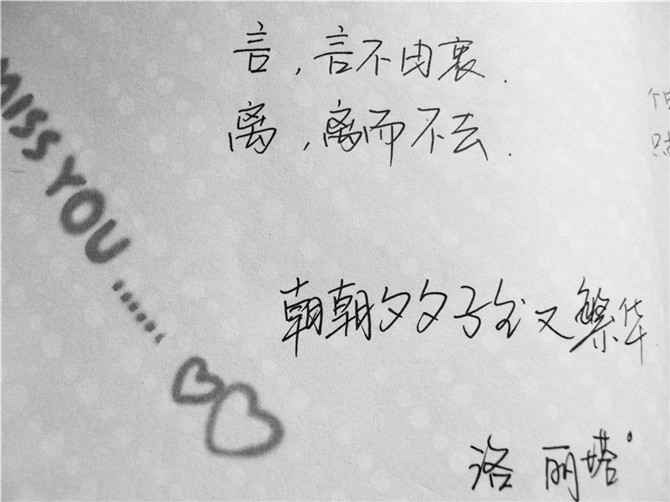 言，言不由衷.
离，离而不去.
MISS YOU ......
朝朝夕夕 又繁华
洛丽塔。